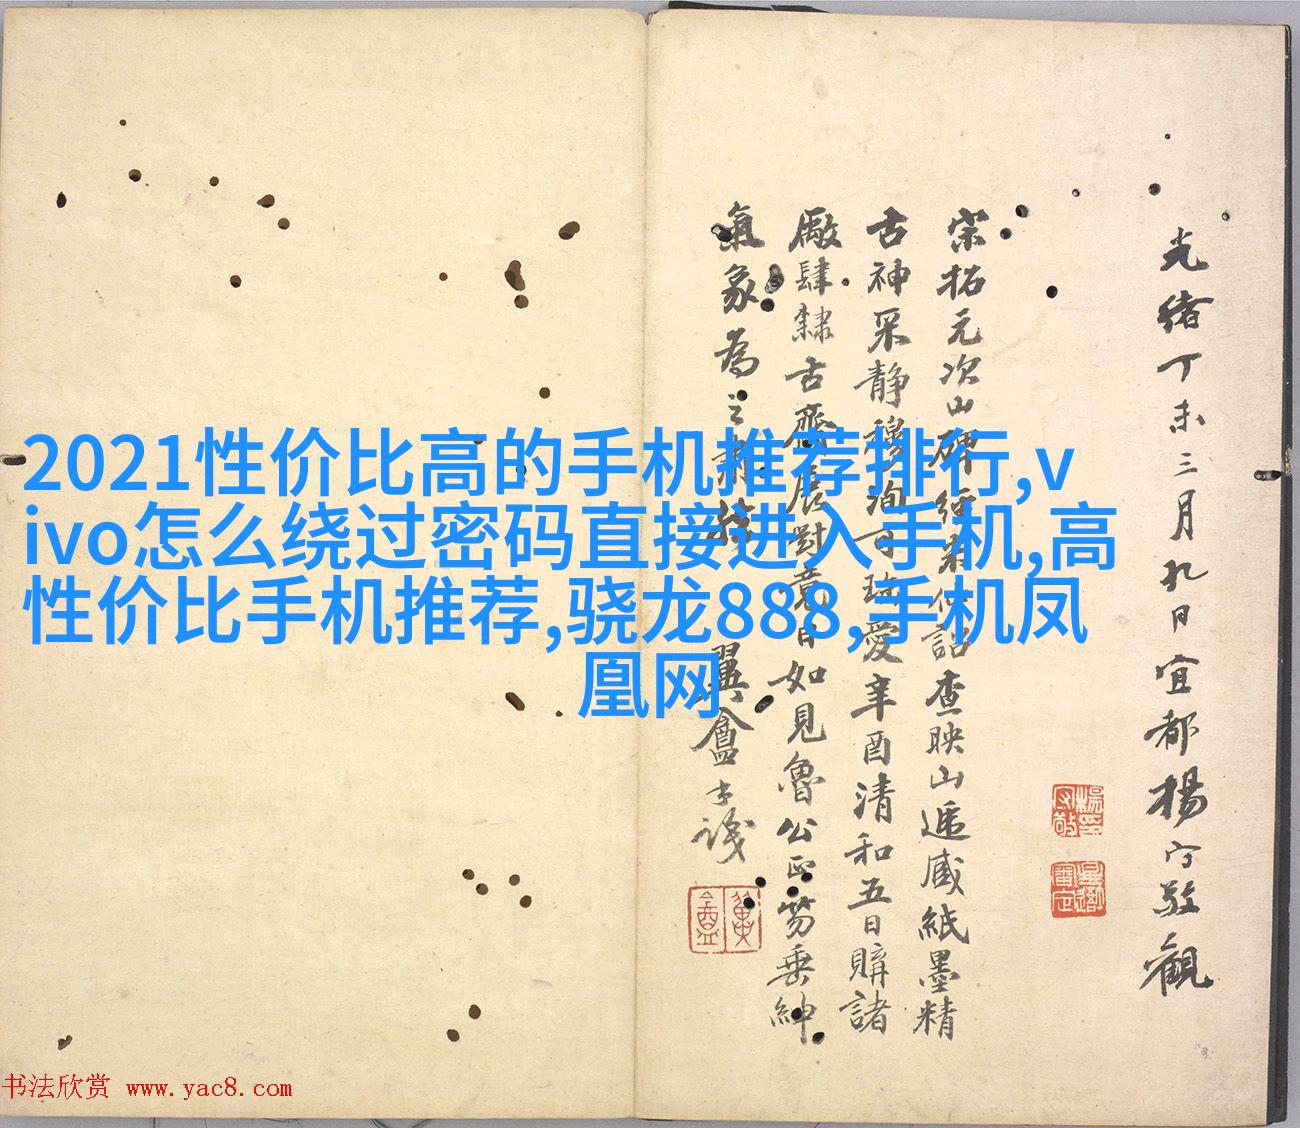 2021性价比高的手机推荐排行,v
ivo怎么绕过密码直接进入手机,高
性价比手机推荐,骁龙888,手机凤
凰网
光绪丁未三月九日宜都楊守敬觀
宋拓元次山碑
查映山遞藏紙墨精
古神采静穆
愛辛酉清和五日購諸
廠肆隸古齋展對竟日如見魯公正笏垂紳
氣象為之
翼盦
书法欣赏 www.yac8.com